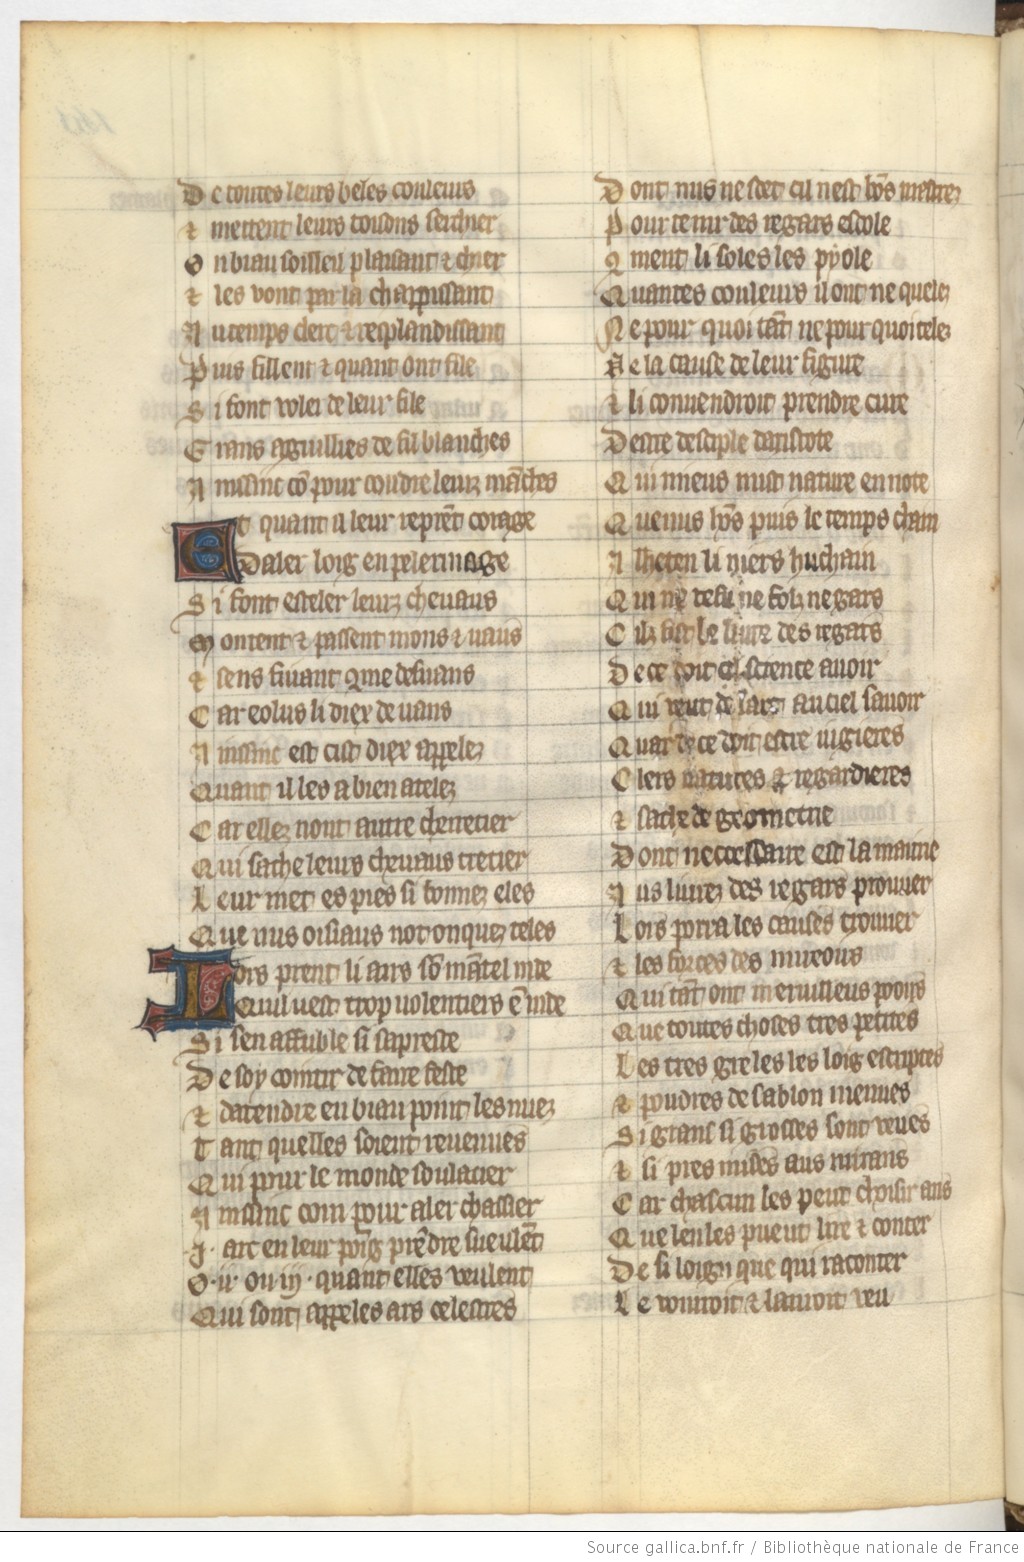 De toutes leurs beles couleurs
⁊ mettent leurs toisons sechier
On biau soilleu plaisant ⁊ chier
⁊ les vont par la charpissant
Au temps cler ⁊ resplandissant
Puis fillent ⁊ quant ont file
Si font voler de leur file
Grans aguillies de fil blanches
Aussinc cō pour coudre leurz māches
Et quant il leur repret corage
Daler loig en pelerinage
Si font esteler leurz chevaus
Montent ⁊ passent mons ⁊ vaus
⁊ sens fuiant qme desvans
Car eolus li diex de vans
Aussinc est cist diex appelez
Quant il les a bien atelez
Car ellez nont autre cherretier
Qui sache leurs chevaus tretier
Leur met es pies si bonnez eles
Que nus oisiaus not onquez teles
Lors prent li airs sō mātel inde
Quil vest trop volentiers ē inde
Si sen affuble si sapreste
De soy cointir de faire feste
⁊ datendre en biau point les nuez
Tant quelles soient revenues
Qui pour le monde soulacier
Aussinc com pour aler chassier
.I. arc en leur poīg prēdre sueulēt
O .ii. ou iij. quant elles veulent
Qui sont appeles ars celestres
Dont nus ne scet cil nest bōs mestrez
Pour tenir des regars escole
9ment li soles les pyole
Quantes couleurs il ont ne quelez
Ne pour quoi tāt ne pour quoi telez
Ne la cause de leur figure
⁊ li convendroit prendre cure
Destre desciple daristote
Qui mieus mist nature en note
Que nus hōs puis le temps chaīn
Alhcten li niers huchain
Qui ne refu ne folz ne gars
Cilz fist le livre des regars
De ce doit cil science avoir
Qui veut de larc au ciel savoir
Quar de ce doit estre jugieres
Clers natures ⁊ regardieres
⁊ sache de geometrie
Dont neccessaire est la maitrie
Aus livrez des regars prouver
Lors porra les causes trouver
⁊ les forces des mireours
Qui tāt ont merveilleus pooirs
Que toutes choses tres petites
Les tres greles les loig escriptes
⁊ poudres de sablon menues
Si grans si grosses sont veues
⁊ si pres mises aus mirans
Car chascun les peut choisir ans
Que len les pueut lire ⁊ conter
De si loign que qui raconter
Le vourroit ⁊ lauroit veu
Source gallica.bnf.fr / Bibliothèque nationale de France